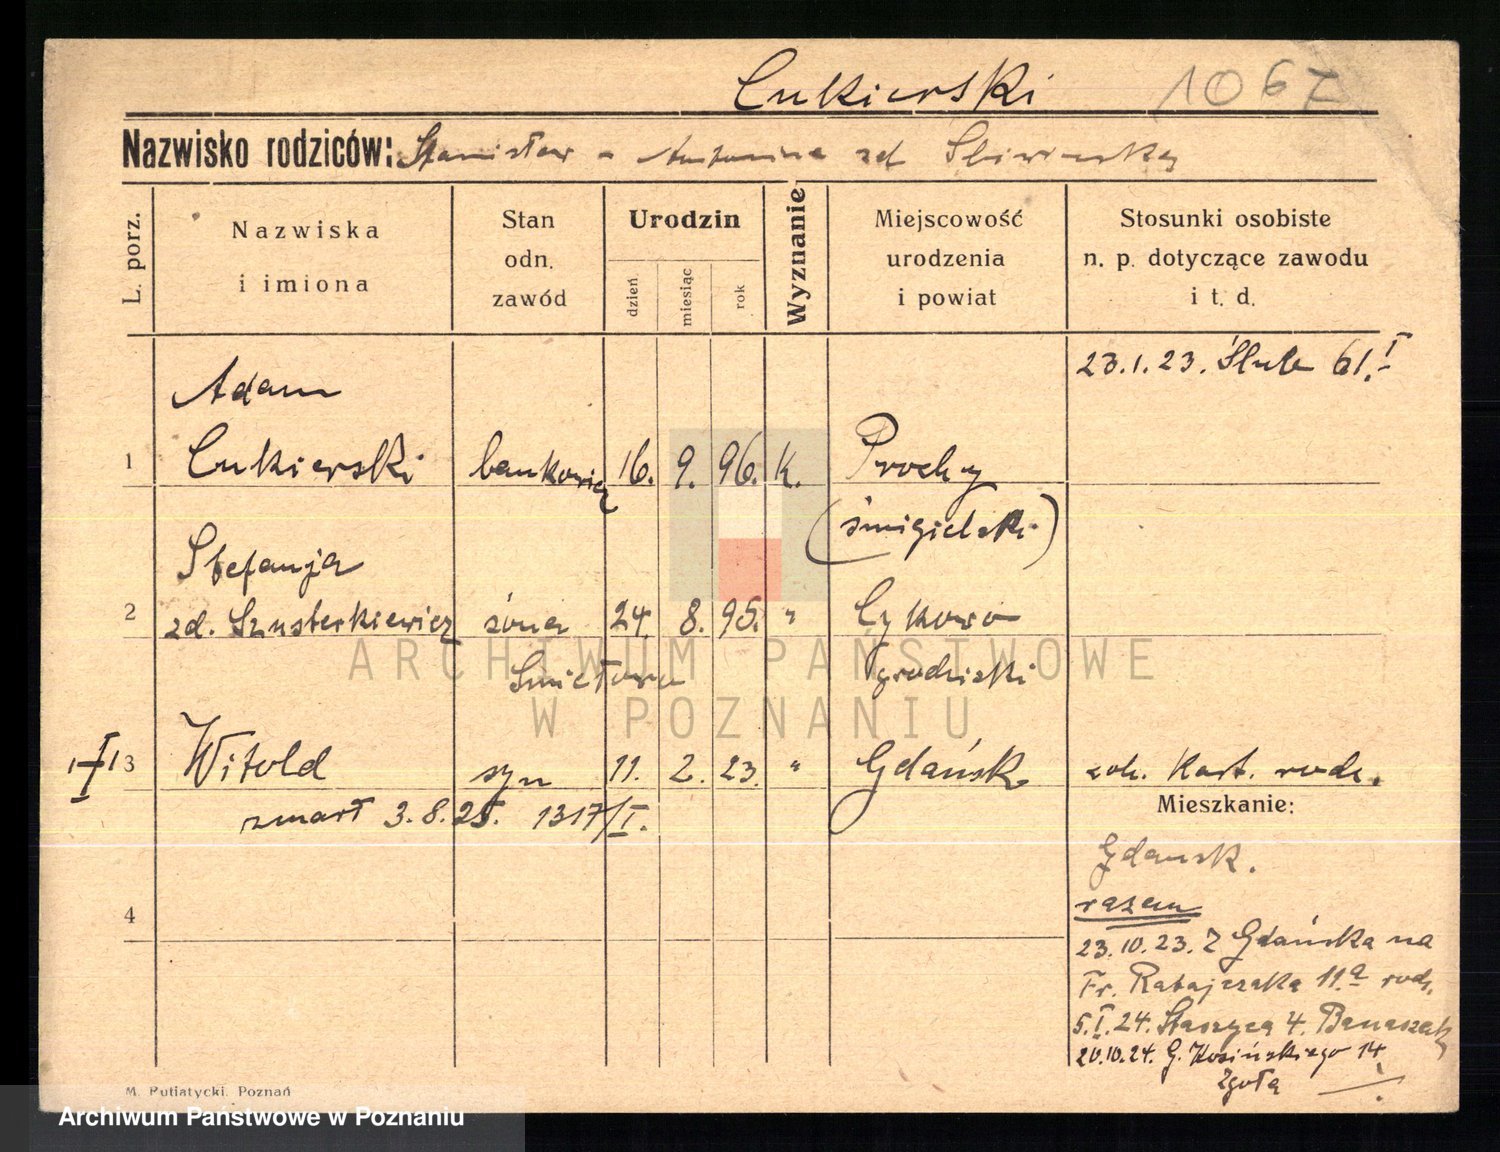 Cukierski 1067
Nazwisko rodziców: Stanisław - Antonina zd Śliwińska
L. porz.
Nazwiska
i imiona
Stan
odn.
zawód
Urodzin
dzień
miesiąc
rok
Wyznanie
Miejscowość
urodzenia
i powiat
Stosunki osobiste
n. p. dotyczące zawodu
i t. d.
23.1.23. Ślub 61.I
Adam
1 Cukierski bankowiec 16. 9. 96. k. Prochy
(śmigielski)
Stefanja
2 zd. Szusterkiewicz żona 24. 8. 95. " Cykowo
grodziski
1 I 13 Witold syn 11. 2. 23. " Gdańsk zob. Kart. rodz.
zmarł 3.8.25. 1317/I.
Mieszkanie:
Gdansk.
razem
23.10.23. Z Gdańska na
Fr. Ratajczaka 11.a rodz.
5.I.24. Staszyca 4. Banaszak
20.10.24. G. Kosińskiego 14
Zgoła
4
M. Putiatycki, Poznań
ARCHIWUM PAŃSTWOWE
W POZNANIU
Archiwum Państwowe w Poznaniu